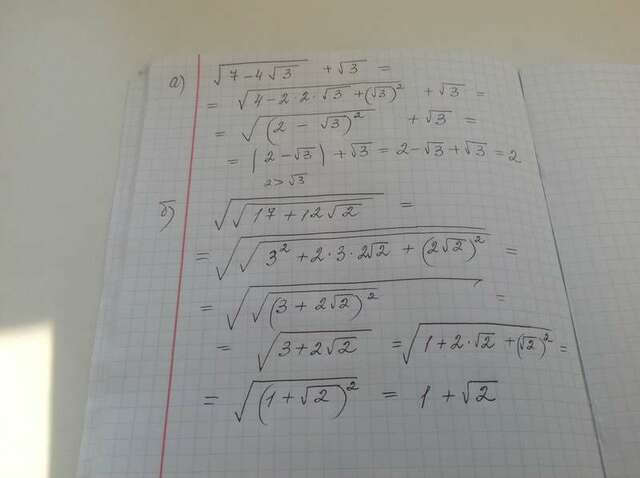 а) √(7-4√3) + √3 =
= √(4-2·2·√3+(√3)²) + √3 =
= √((2-√3)²) + √3 =
= |2-√3| + √3 = 2-√3+√3 = 2
2>√3
б) √(√(17+12√2)) =
= √(√(3²+2·3·2√2+(2√2)²)) =
= √(√((3+2√2)²)) =
= √(3+2√2) = √(1+2·√2+(√2)²) =
= √((1+√2)²) = 1+√2